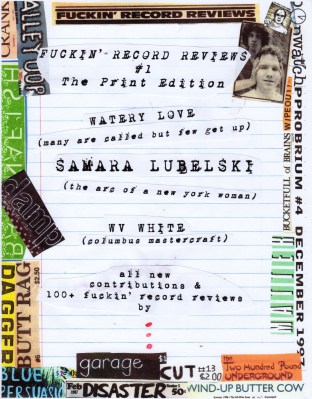 FUCKIN' RECORD REVIEWS
FUCKIN' RECORD REVIEWS
#1
The Print Edition
WATERY LOVE
(many are called but few get up)
SAMARA LUBELSKI
(the arc of a new york woman)
WV WHITE
(columbus mastercraft)
all new
contributions &
100+ fuckin' record reviews
by
CRANK
ALLEY OOP
damp
DAGGER
BUTT RAG
$2.50
#6
BLUE
PERSUASION
Feb
DISASTER
50¢
garage
CUT
#13
$2.00
the
Two Hundred Pound
UNDERGROUND
WIND-UP BUTTER COW
OPPROBRIUM #4 DECEMBER 1997
WIPEOUT!
BUCKETFULL of BRAINS